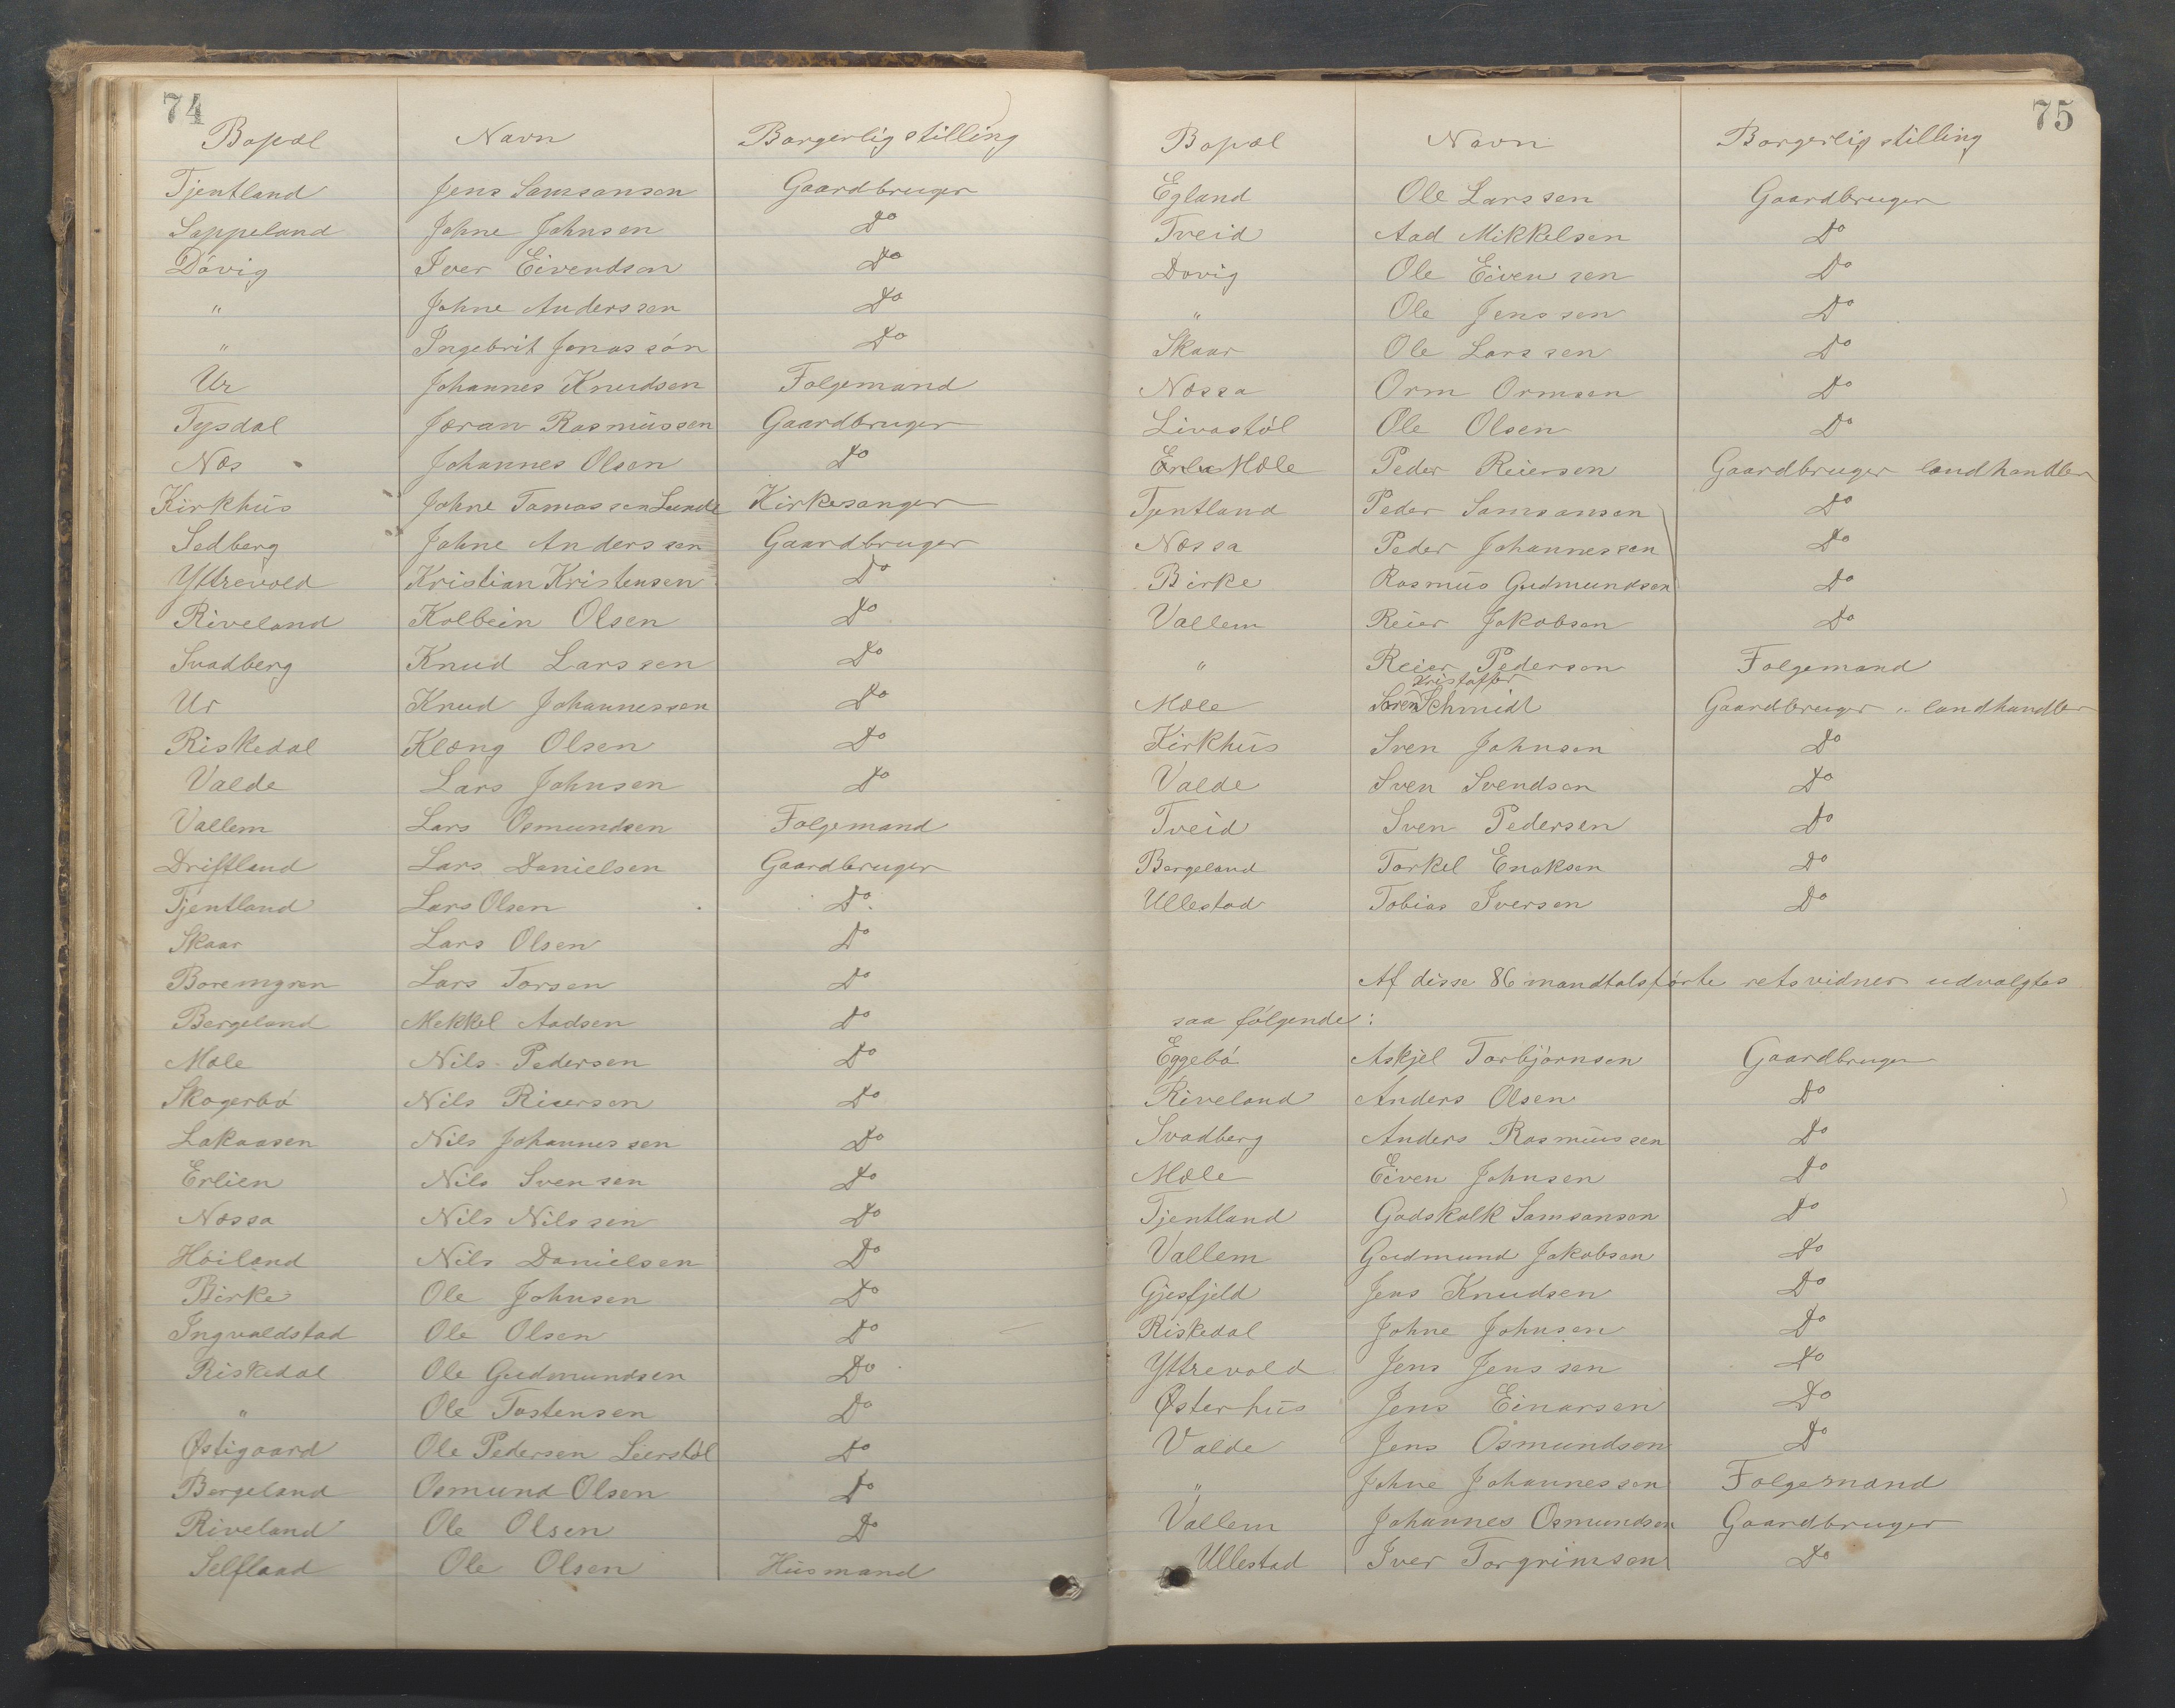 74
Bopæl Navn Borgerlig stilling
Tjentland Jens Samsonsen Gaardbruger
Sappeland Johne Johnsen Do
Dövig Iver Eivendsen Do
" Johne Anderssen Do
" Ingebrit Jonassön Do
Ur Johannes Knudsen Folgemand
Tysdal Joran Rasmussen Gaardbruger
Næs Johannes Olsen Do
Kirkhus Johne Tomassen Lunde Kirkesanger
Sedberg Johne Anderssen Gaardbruger
Yttrevold Kristian Kristensen Do
Riveland Kolbein Olsen Do
Svadberg Knud Larssen Do
Ur Knud Johannessen Do
Riskedal Klæng Olsen Do
Valde Lars Johnsen Do
Vallem Lars Osmundsen Folgemand
Driftland Lars Danielsen Gaardbruger
Tjentland Lars Olsen Do
Skaar Lars Olsen Do
Boremgren Lars Torsen Do
Bergeland Mekkel Aadsen Do
Mæle Nils Pedersen Do
Skogerbö Nils Riersen Do
Lakaasen Nils Johannessen Do
Erlien Nils Svensen Do
Næssa Nils Nilssen Do
Höiland Nils Danielsen Do
Birke Ole Johnsen Do
Ingvaldstad Ole Olsen Do
Riskedal Ole Gudmundsen Do
" Ole Tostensen Do
Østigaard Ole Pedersen Leerstöl Do
Bergeland Osmund Olsen Do
Riveland Ole Olsen Do
Selflaad Ole Olsen Husmand
75
Bopæl Navn Borgerlig stilling
Egland Ole Larssen Gaardbruger
Tveid Aad Mikkelsen Do
Dovig Ole Eivensen Do
" Ole Jenssen Do
Skaar Ole Larssen Do
Næssa Orm Ormsen Do
Livastöl Ole Olsen Do
Mæle Peder Reiersen Gaardbruger landhandler
Tjentland Peder Samsonsen Do
Næssa Peder Johannessen Do
Birke Rasmus Gudmundsen Do
Vallem Reier Jakobsen Do
" Reier Pedersen Folgemand
Kristoffer
Mæle Sören Schmidt Gaardbruger " landhandler
Kirkhus Sven Johnsen Do
Valde Sven Svendsen Do
Tveid Sven Pedersen Do
Bergeland Torkel Enoksen Do
Ullestad Tobias Iversen Do
Af disse 86 mandtalsförte retsvidner udvalgtes
saa fölgende:
Eggebö Askjel Torbjörnsen Gaardbruger
Riveland Anders Olsen Do
Svadberg Anders Rasmussen Do
Mæle Eiven Johnsen Do
Tjentland Godskalk Samsonsen Do
Vallem Gudmund Jakobsen Do
Gjesfjeld Jens Knudsen Do
Riskedal Johne Johnsen Do
Yttrevold Jens Jenssen Do
Østerhus Jens Einarsen Do
Valde Jens Osmundsen Do
" Johne Johannessen Folgemand
Vallem Johannes Osmundsen Gaardbruger
Ullestad Iver Torgrimsen Do